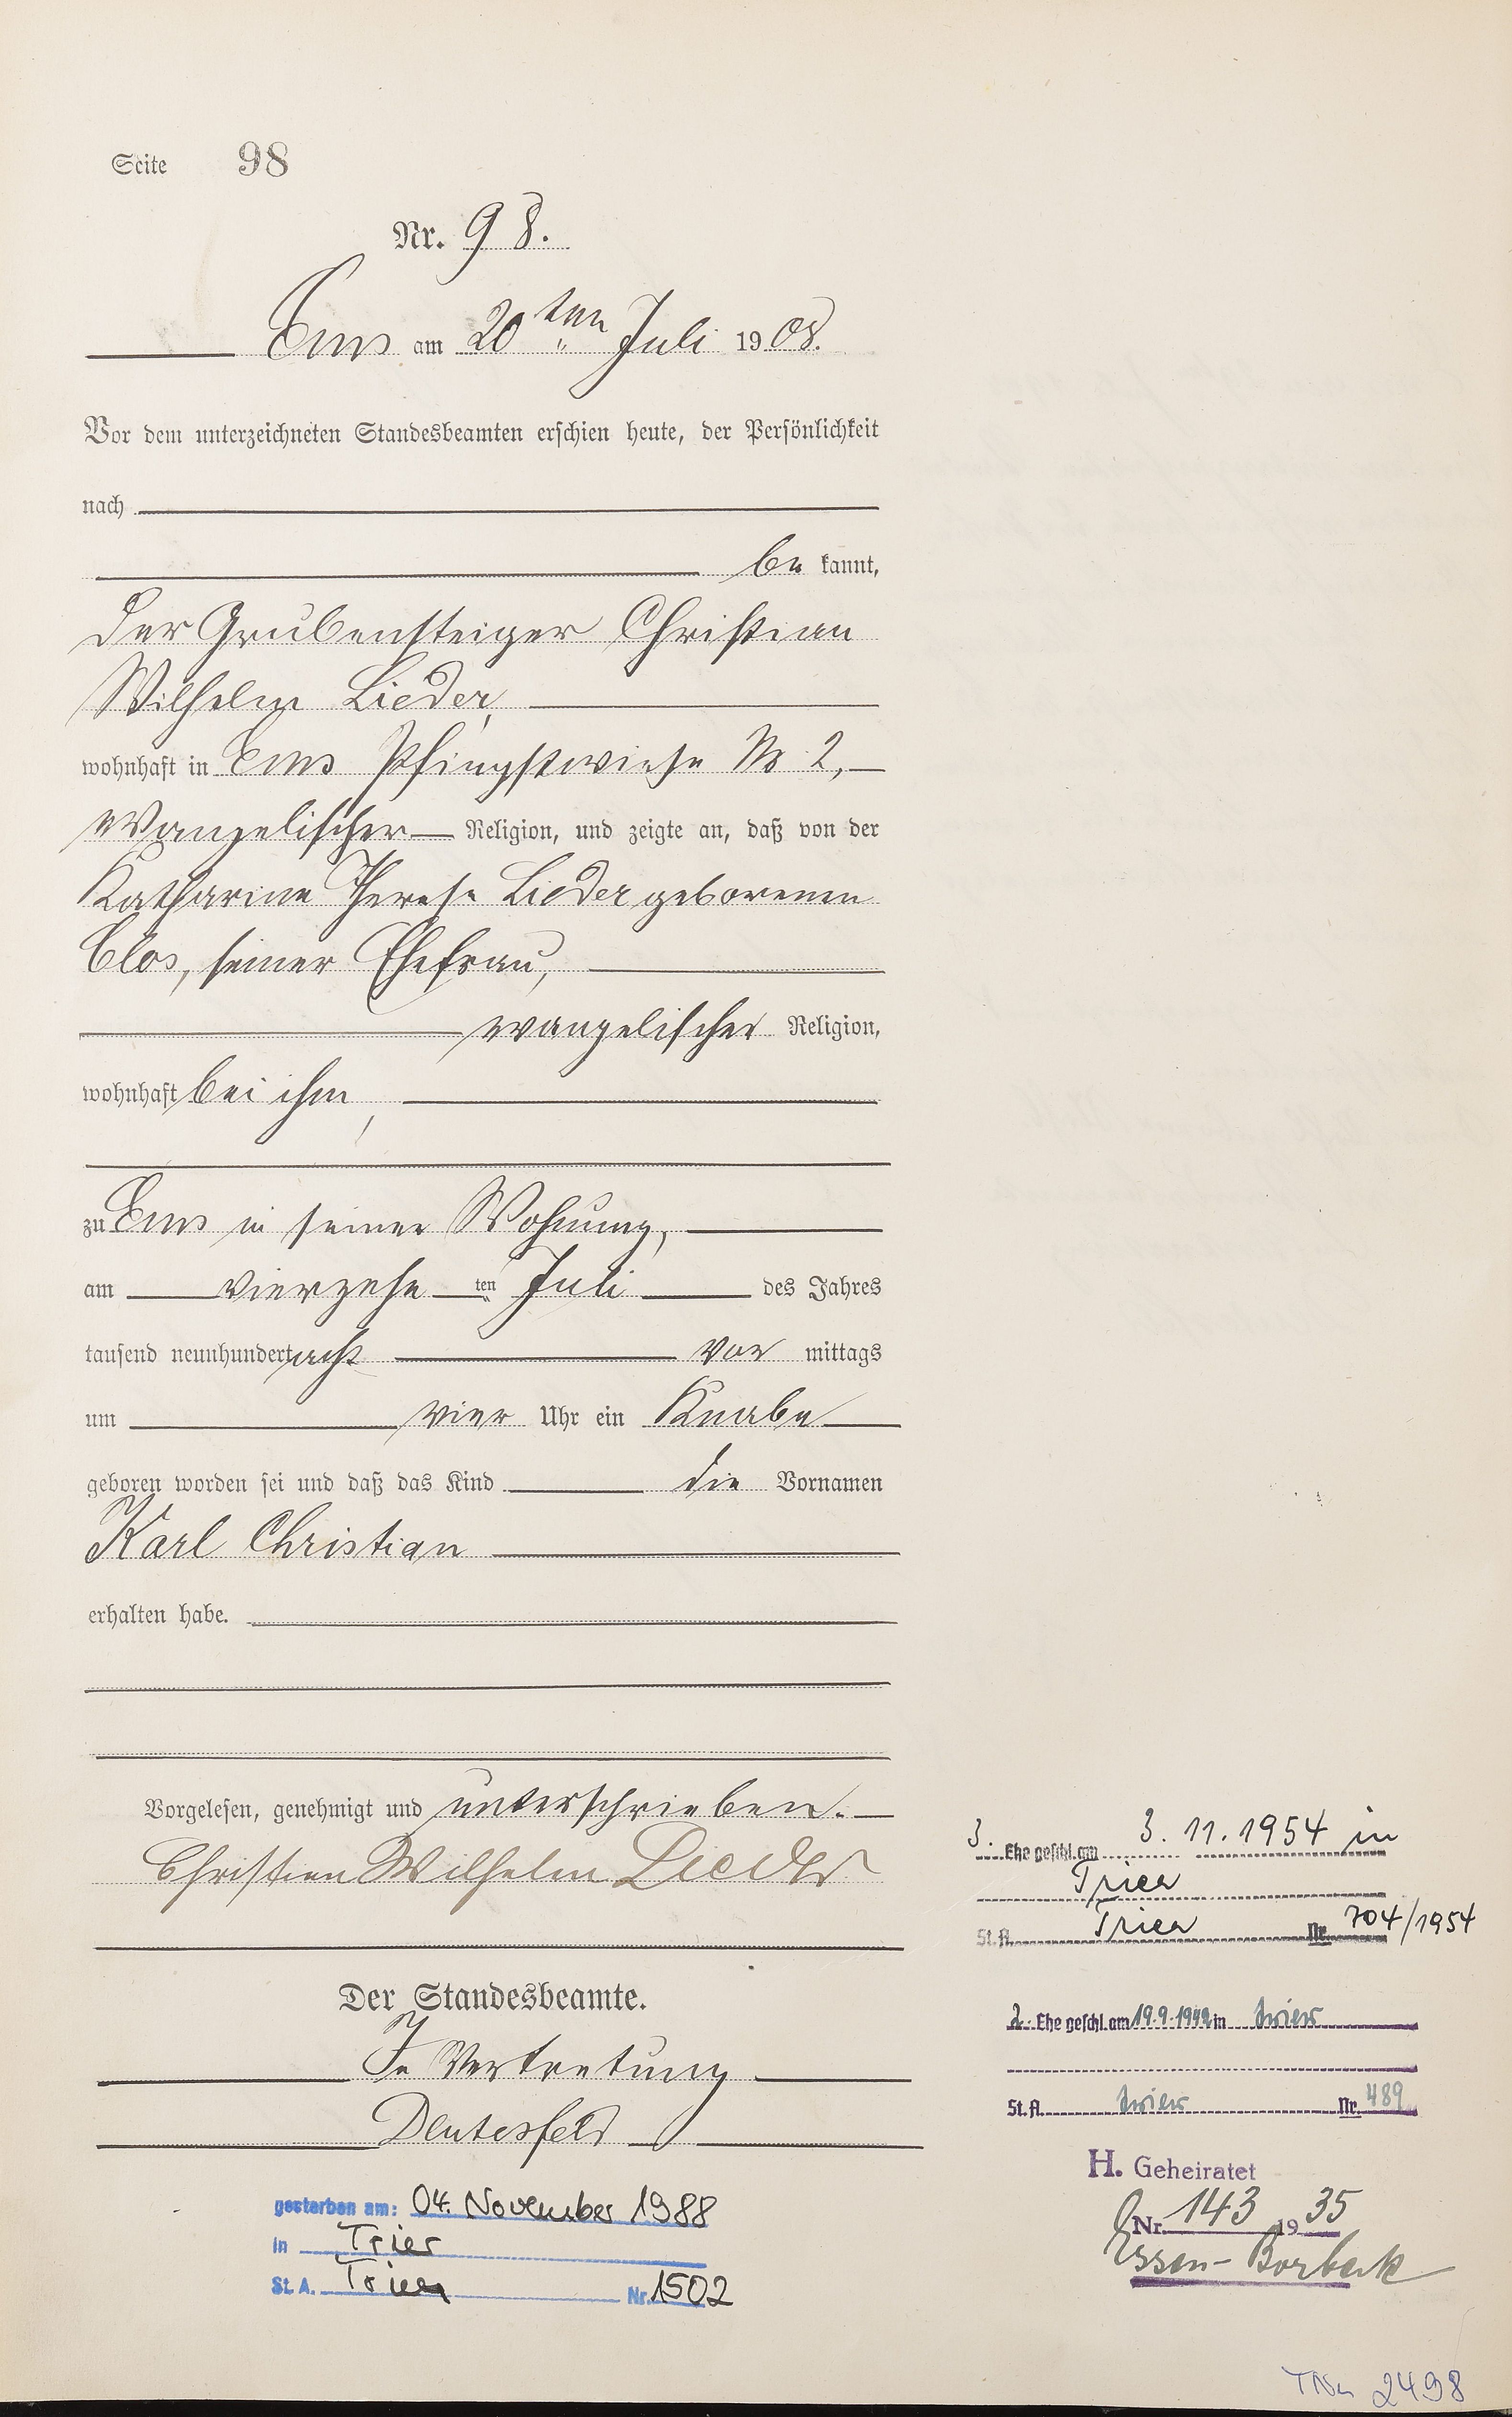 Seite 98
Nr. 98.
Ems am 20ten Juli 1908.
Vor dem unterzeichneten Standesbeamten erschien heute, der Persönlichkeit
nach
be kannt,
der Grubensteiger Christian
Wilhelm Lieder,
wohnhaft in Ems Pfingstwiese № 2,
evangelischer Religion, und zeigte an, daß von der
Katharine Therese Lieder geborenen
Clos, seiner Ehefrau,
evangelischer Religion,
wohnhaft bei ihm,
zu Ems in seiner Wohnung,
am vierzehn ten Juli des Jahres
tausend neunhundert acht vor mittags
um vier Uhr ein Knabe
geboren worden sei und daß das Kind die Vornamen
Karl Christian
erhalten habe.
Vorgelesen, genehmigt und unterschrieben.
Christian Wilhelm Lieder
Der Standesbeamte.
In Vertretung
Deutesfeld
gestorben am: 04. November 1988
in Trier
St. A. Trier Nr. 1502
3. Ehe geschl. am 3. 11. 1954 in
Trier
St. A. Trier Nr. 704/1954
2. Ehe geschl. am 19.9.1942 in Trier
St. A. Trier Nr. 489
H. Geheiratet
Nr. 143 1935
Essen-Borbeck
2498